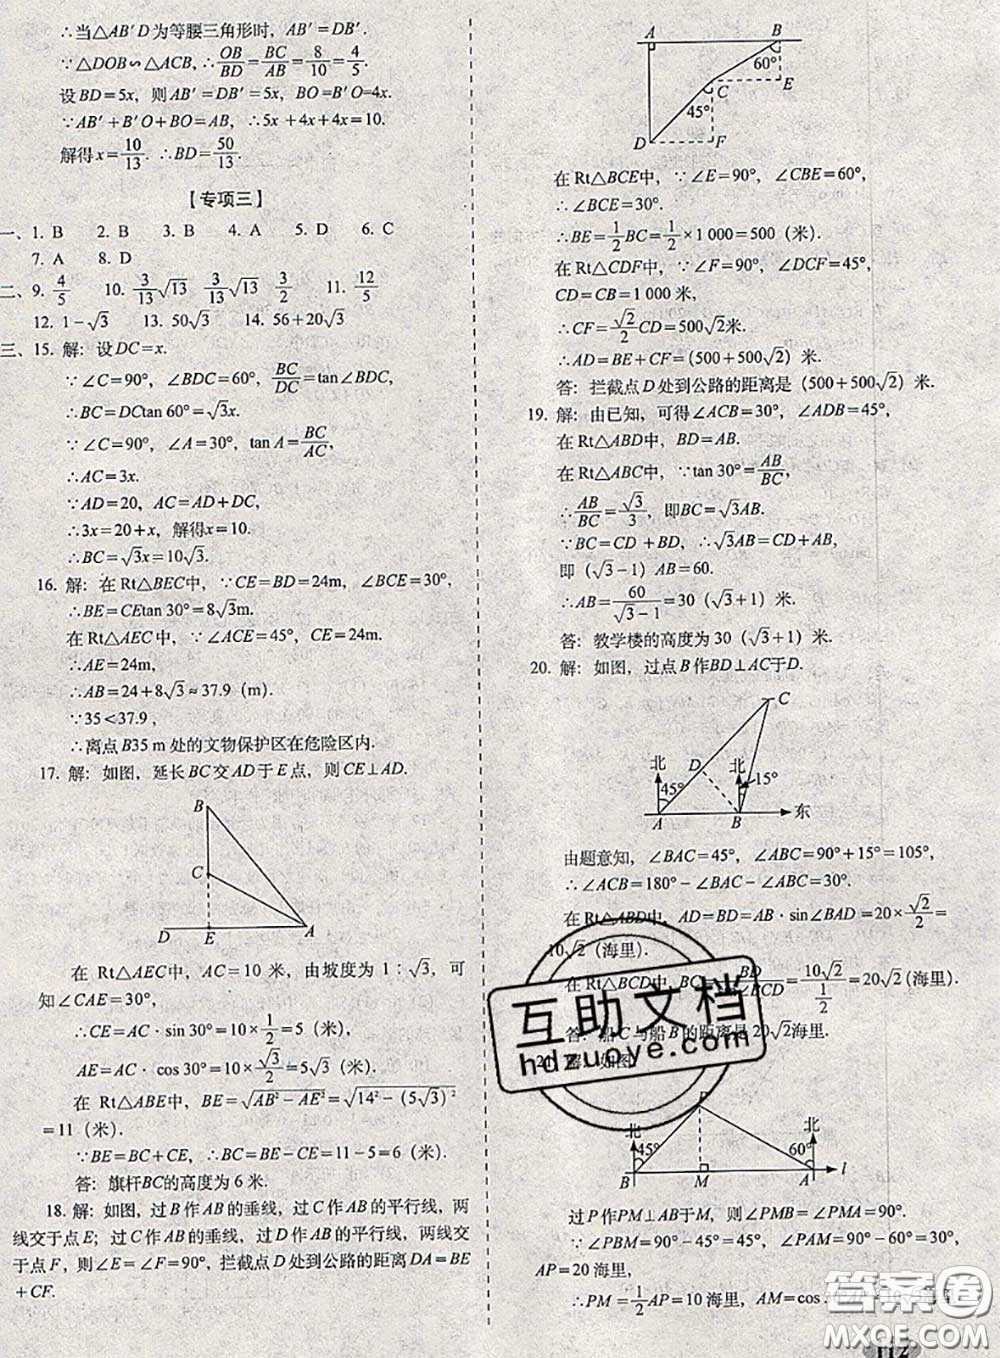 ∴当△AB′D为等腰三角形时，AB′=DB′.
∵△DOB∽△ACB, ∴OB/BD=BC/AB=8/10=4/5.
设BD=5x, 则AB′=DB′=5x, BO=B′O=4x.
∵AB′+B′O+BO=AB, ∴5x+4x+4x=10.
解得x=10/13. ∴BD=50/13.
【专项三】
一、1. B 2. B 3. B 4. A 5. D 6. C
7. A 8. D
二、9. 4/5 10. 3/13√13 3/13√13 3/2 11. 12/5
12. 1-√3 13. 50√3 14. 56+20√3
三、15. 解：设DC=x.
∵∠C=90°, ∠BDC=60°, BC/DC=tan∠BDC,
∴BC=DCtan 60°=√3x.
∵∠C=90°, ∠A=30°, tan A=BC/AC,
∴AC=3x.
∵AD=20, AC=AD+DC,
∴3x=20+x, 解得x=10.
∴BC=√3x=10√3.
16. 解：在Rt△BEC中，∵CE=BD=24m, ∠BCE=30°,
∴BE=CEtan 30°=8√3m.
在Rt△AEC中，∵∠ACE=45°, CE=24m.
∴AE=24m,
∴AB=24+8√3≈37.9 (m).
∵35<37.9,
∴离点B35 m处的文物保护区在危险区内.
17. 解：如图，延长BC交AD于E点，则CE⊥AD.
B
C
D E A
在 Rt△AEC中，AC=10 米，由坡度为 1∶√3, 可
知∠CAE=30°,
∴CE=AC·sin 30°=10×1/2=5 (米),
AE=AC·cos 30°=10×√3/2=5√3 (米).
在 Rt△ABE中，BE=√(AB²-AE²)=√(14²-(5√3)²)
=11 (米).
∵BE=BC+CE, ∴BC=BE-CE=11-5=6 (米).
答：旗杆BC的高度为6米.
18. 解：如图，过B作AB的垂线，过C作AB的平行线，两
线交于点E；过C作AB的垂线，过D作AB的平行线，两线交
于点F，则∠E=∠F=90°, 拦截点D处到公路的距离DA=BE
+CF.
A B
60°
C E
45°
D F
在 Rt△BCE中，∵∠E=90°, ∠CBE=60°,
∴∠BCE=30°.
∴BE=1/2BC=1/2×1 000=500 (米).
在 Rt△CDF中，∵∠F=90°, ∠DCF=45°,
CD=CB=1 000 米,
∴CF=√2/2CD=500√2米.
∴AD=BE+CF=(500+500√2) 米.
答：拦截点D处到公路的距离是 (500+500√2) 米.
19. 解：由已知，可得∠ACB=30°, ∠ADB=45°,
在 Rt△ABD中，BD=AB.
在 Rt△ABC中，∵tan 30°=AB/BC,
∴AB/BC=√3/3, 即BC=√3AB.
∵BC=CD+BD, ∴√3AB=CD+AB.
即 (√3-1) AB=60.
∴AB=60/(√3-1)=30 (√3+1) 米.
答：教学楼的高度为30 (√3+1) 米.
20. 解：如图，过点B作BD⊥AC于D.
C
北 D 北
45° 15°
A B 东
由题意知，∠BAC=45°, ∠ABC=90°+15°=105°,
∴∠ACB=180°-∠BAC-∠ABC=30°.
在 Rt△ABD中，AD=BD=AB·sin∠BAD=20×√2/2=
10√2 (海里).
在 Rt△BCD中，BC=BD/∠BCD=10√2/(1/2)=20√2 (海里).
答：船C与船B的距离是20√2海里.
21. 解：如图
北 P 北
45° 60°
B M A l
过P作PM⊥AB于M, 则∠PMB=∠PMA=90°.
∵∠PBM=90°-45°=45°, ∠PAM=90°-60°=30°,
AP=20 海里,
∴PM=1/2AP=10 海里, AM=cos
互助文档
hdzuoye.com
答案圈
MXQE.COM
112